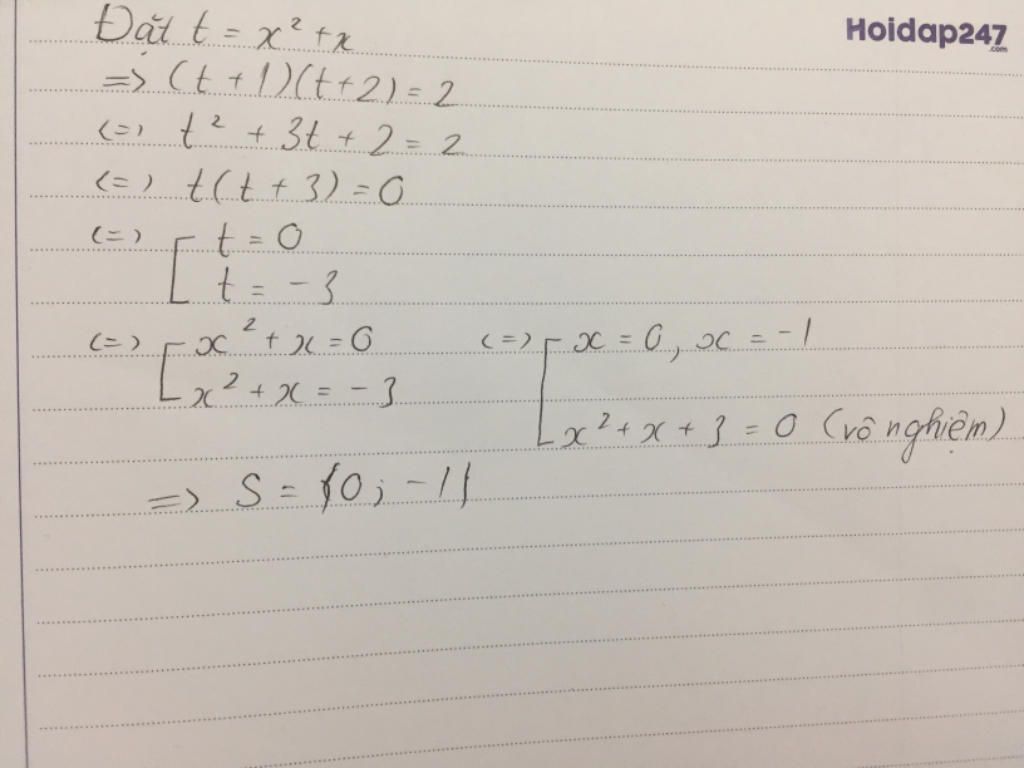 Đặt t = x² + x
Hoidap247
.com
=> (t + 1)(t + 2) = 2
(=) t² + 3t + 2 = 2
(=) t(t + 3) = 0
(=) [ t = 0
t = -3
(=) [ x² + x = 0
x² + x = -3
(=) [ x = 0, x = -1
x² + x + 3 = 0 (vô nghiệm)
=> S = {0; -1}